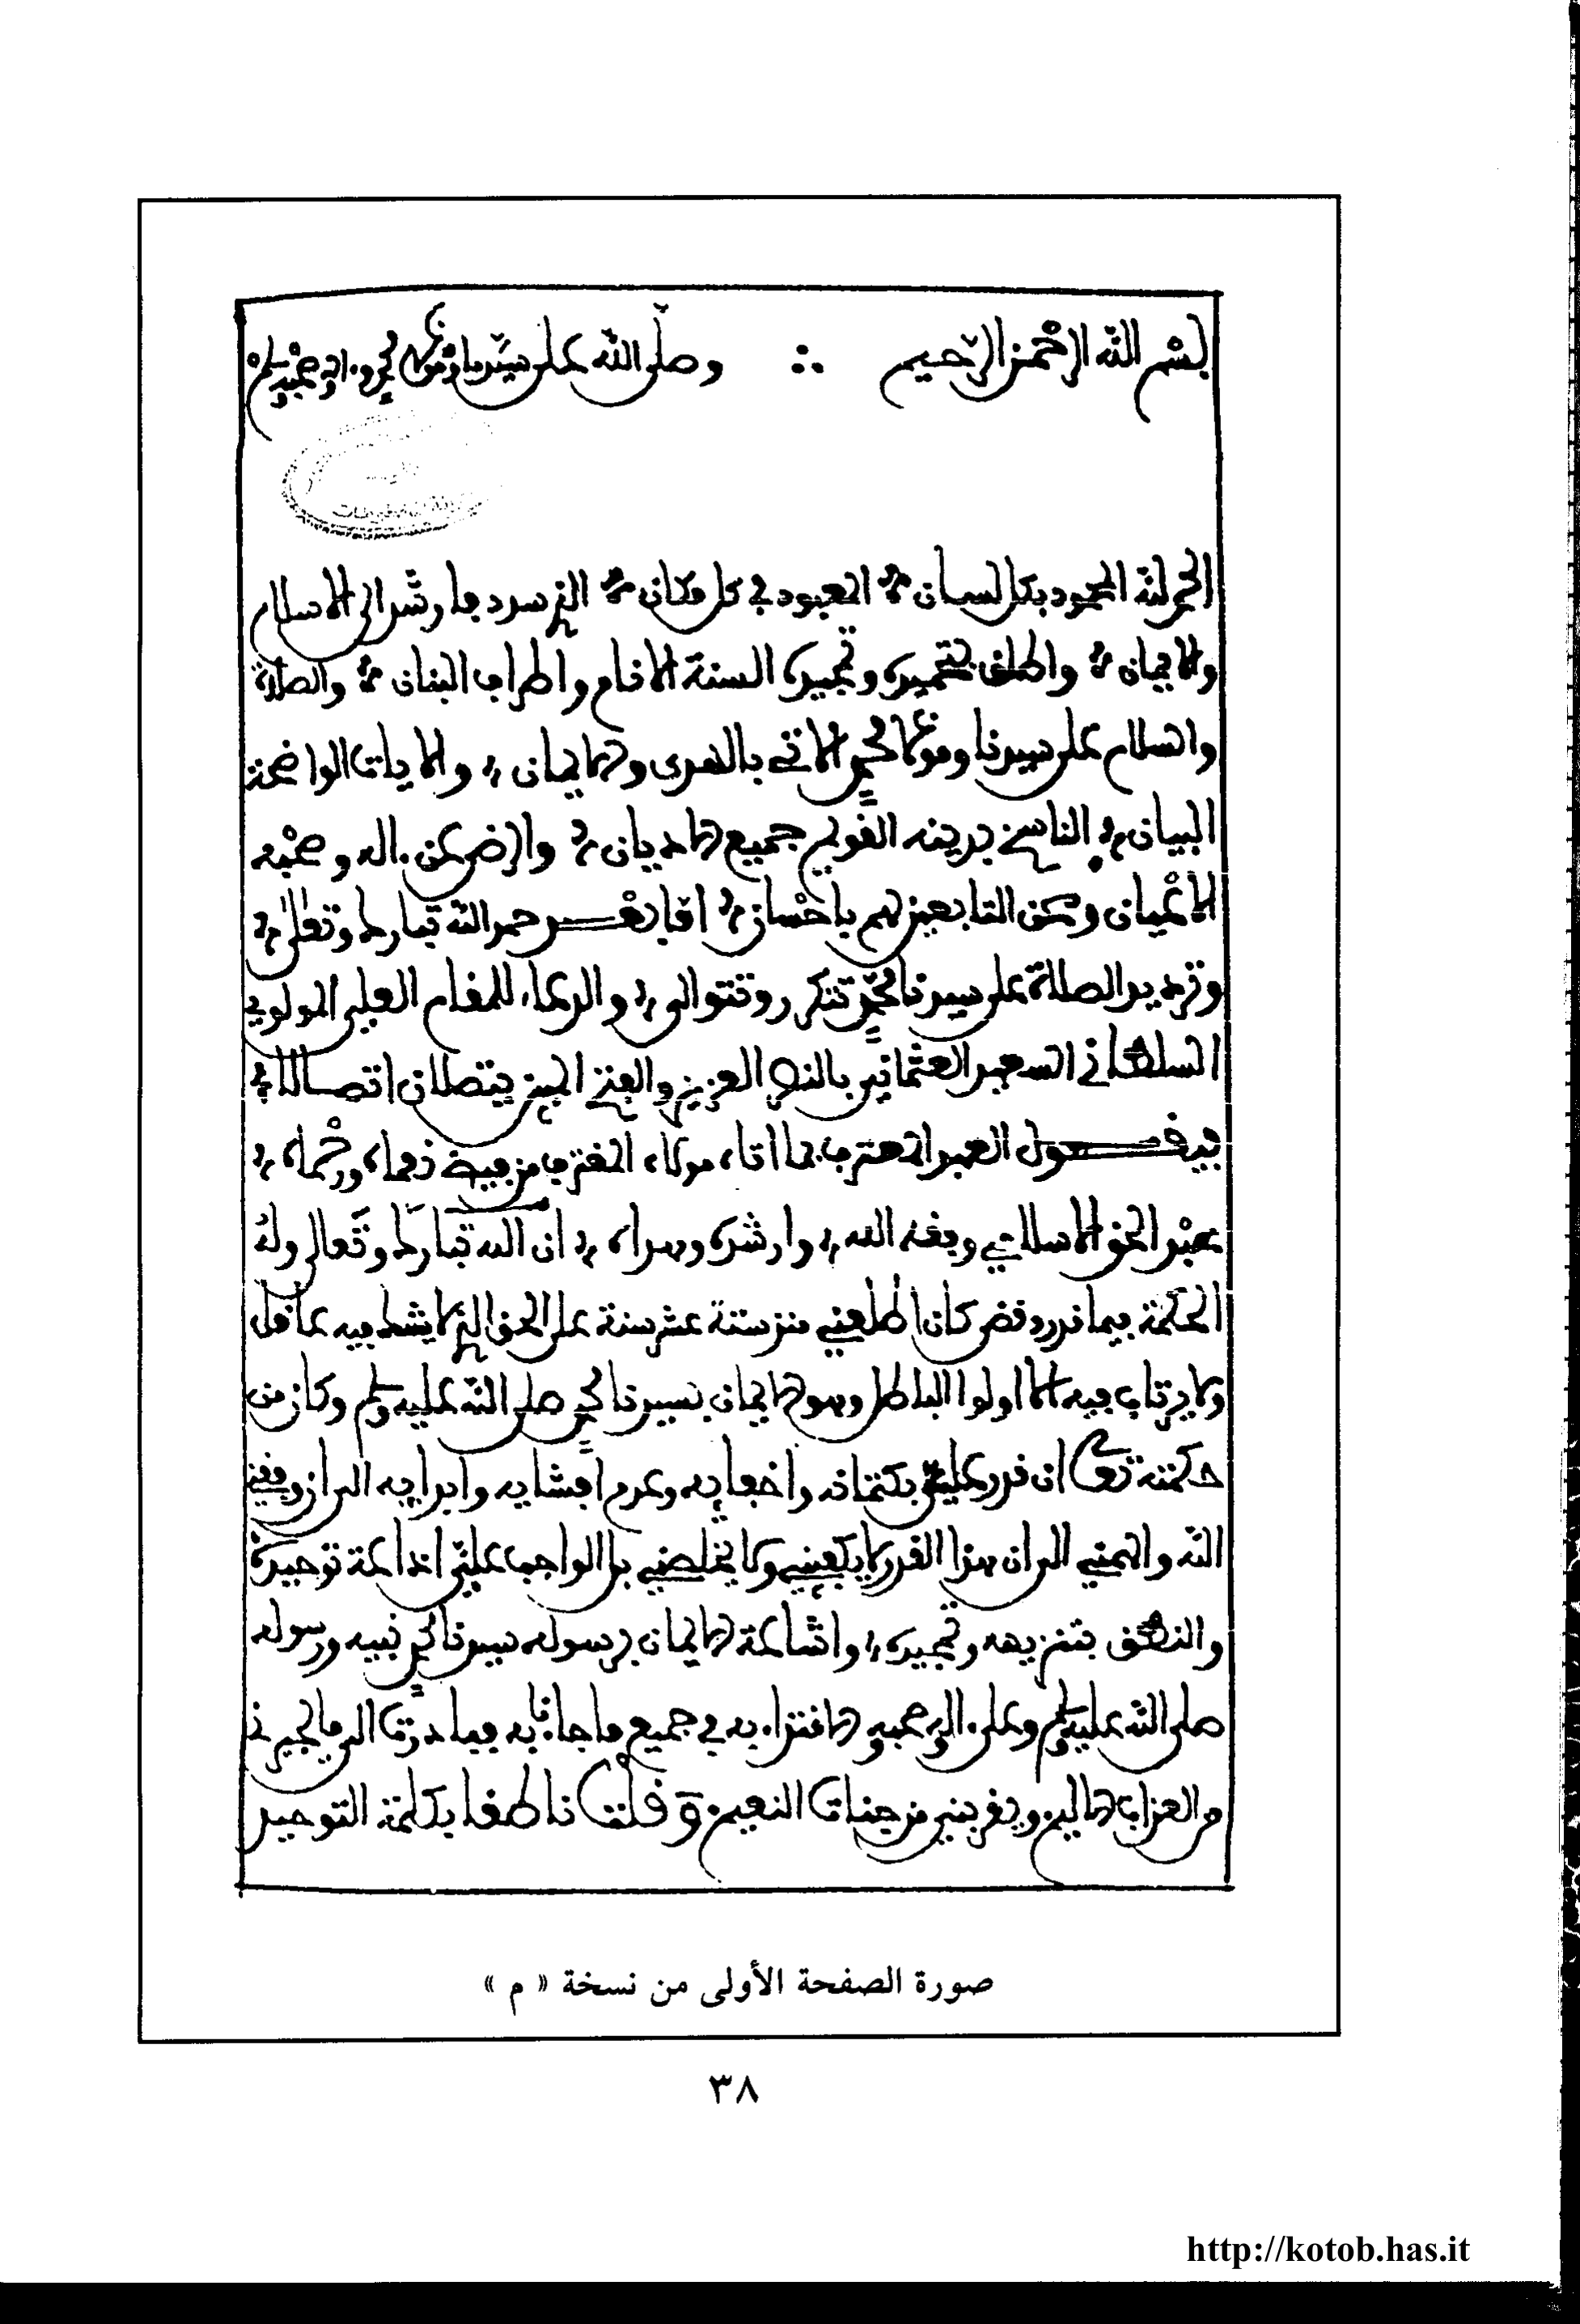 بسم الله الرحمن الرحيم ∴ وصلى الله على سيدنا ومولانا محمد وءاله وصحبه وسلم
الحمد لله المحمود بكل لسان المعبود في كل مكان الذي سدد وأرشد إلى الاسلام
والايمان وأطلق بتحميده وتمجيده السنة الانام وأطراف البنان والصلاة
والسلام على سيدنا ومولانا محمد الاتي بالهدى والايمان والايات الواضحة
البيان الناسخ بدينه القويم جميع الاديان والرضى عن ءاله وصحبه
الأعيان وعن التابعين لهم بإحسان أما بعد حمد الله تبارك وتعلى
وترديد الصلاة على سيدنا محمد تتكرر وتتوالى والدعاء للمقام العلي المولوي
السلطاني السعيد العثماني بالنصر العزيز والفتح المبين يتصلان اتصالا
فيقول العبد المعترف بما أتاه مولاه المغترف من فيض نعماه ورحماه
عبد الحق الاسلامي وفقه الله وأرشده وهداه ان الله تبارك وتعالى وله
الحكمة فيما قدره وقضى كان أطلعني منذ ستة عشر سنة على الحق الذي لا يشك فيه عاقل
ولا يرتاب فيه الا أولوا الباطل وهو الايمان بسيدنا محمد صلى الله عليه وسلم وكان من
حكمته تعالى ان قدر علي بكتمانه واخفايه وعدم افشايه وابدايه الى ان وفقني
الله وألهمني الى ان هذا القدر لا يكفيني ولا يخلصني بل الواجب علي اذاعة توحيده
والنطق بتنزيهه وتمجيده واشاعة الايمان برسوله سيدنا محمد نبيه ورسوله
صلى الله عليه وسلم وعلى ءاله وصحبه والاقتداء به في جميع ما جاءنا به فبادرت الى ما يجيرني
من العذاب الاليم ويقربني من جنات النعيم وقلت ناطقا بكلمة التوحيد
صورة الصفحة الأولى من نسخة « م »
٣٨
http://kotob.has.it